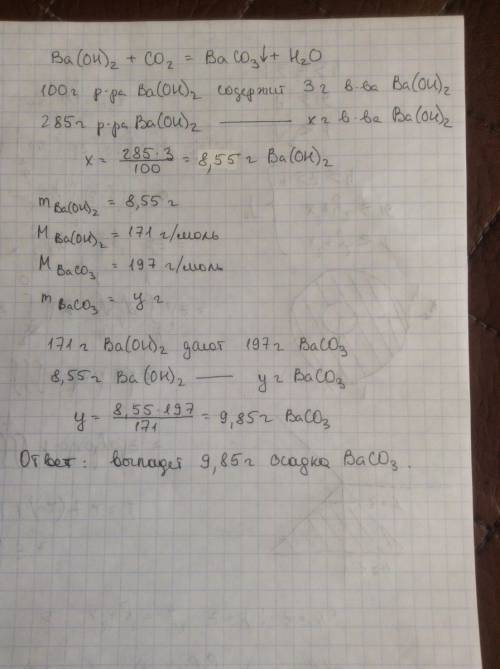 Ba(OH)₂ + CO₂ = BaCO₃↓ + H₂O
100г р-ра Ba(OH)₂ содержит 3г в-ва Ba(OH)₂
285г р-ра Ba(OH)₂ —— xг в-ва Ba(OH)₂
x = 285·3/100 = 8,55 г Ba(OH)₂
m Ba(OH)₂ = 8,55 г
M Ba(OH)₂ = 171 г/моль
M BaCO₃ = 197 г/моль
m BaCO₃ = y г
171 г Ba(OH)₂ дают 197г BaCO₃
8,55г Ba(OH)₂ —— yг BaCO₃
y = 8,55·197/171 = 9,85г BaCO₃
Ответ: выпадет 9,85г осадка BaCO₃.